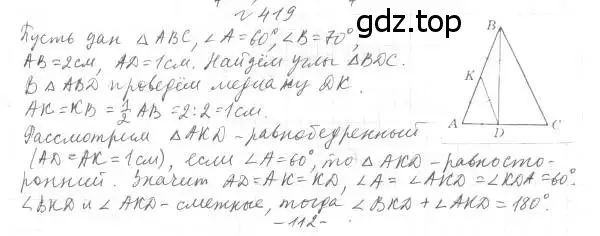 № 419
gdz.top
Пусть дан △ABC, ∠A=60°, ∠B=70°,
AB=2см, AD=1см. Найдём углы △BDC.
В △ABD проведём медиану DK.
AK=KB=1/2 AB=2:2=1см.
Рассмотрим △AKD-равнобедренный
(AD=AK=1см), если ∠A=60°, то △AKD-равносто-
ронний. Значит AD=AK=KD, ∠A=∠AKD=∠KDA=60°.
∠BKD и ∠AKD-смежные, тогда ∠BKD+∠AKD=180°.
-112-
B
K
A
D
C